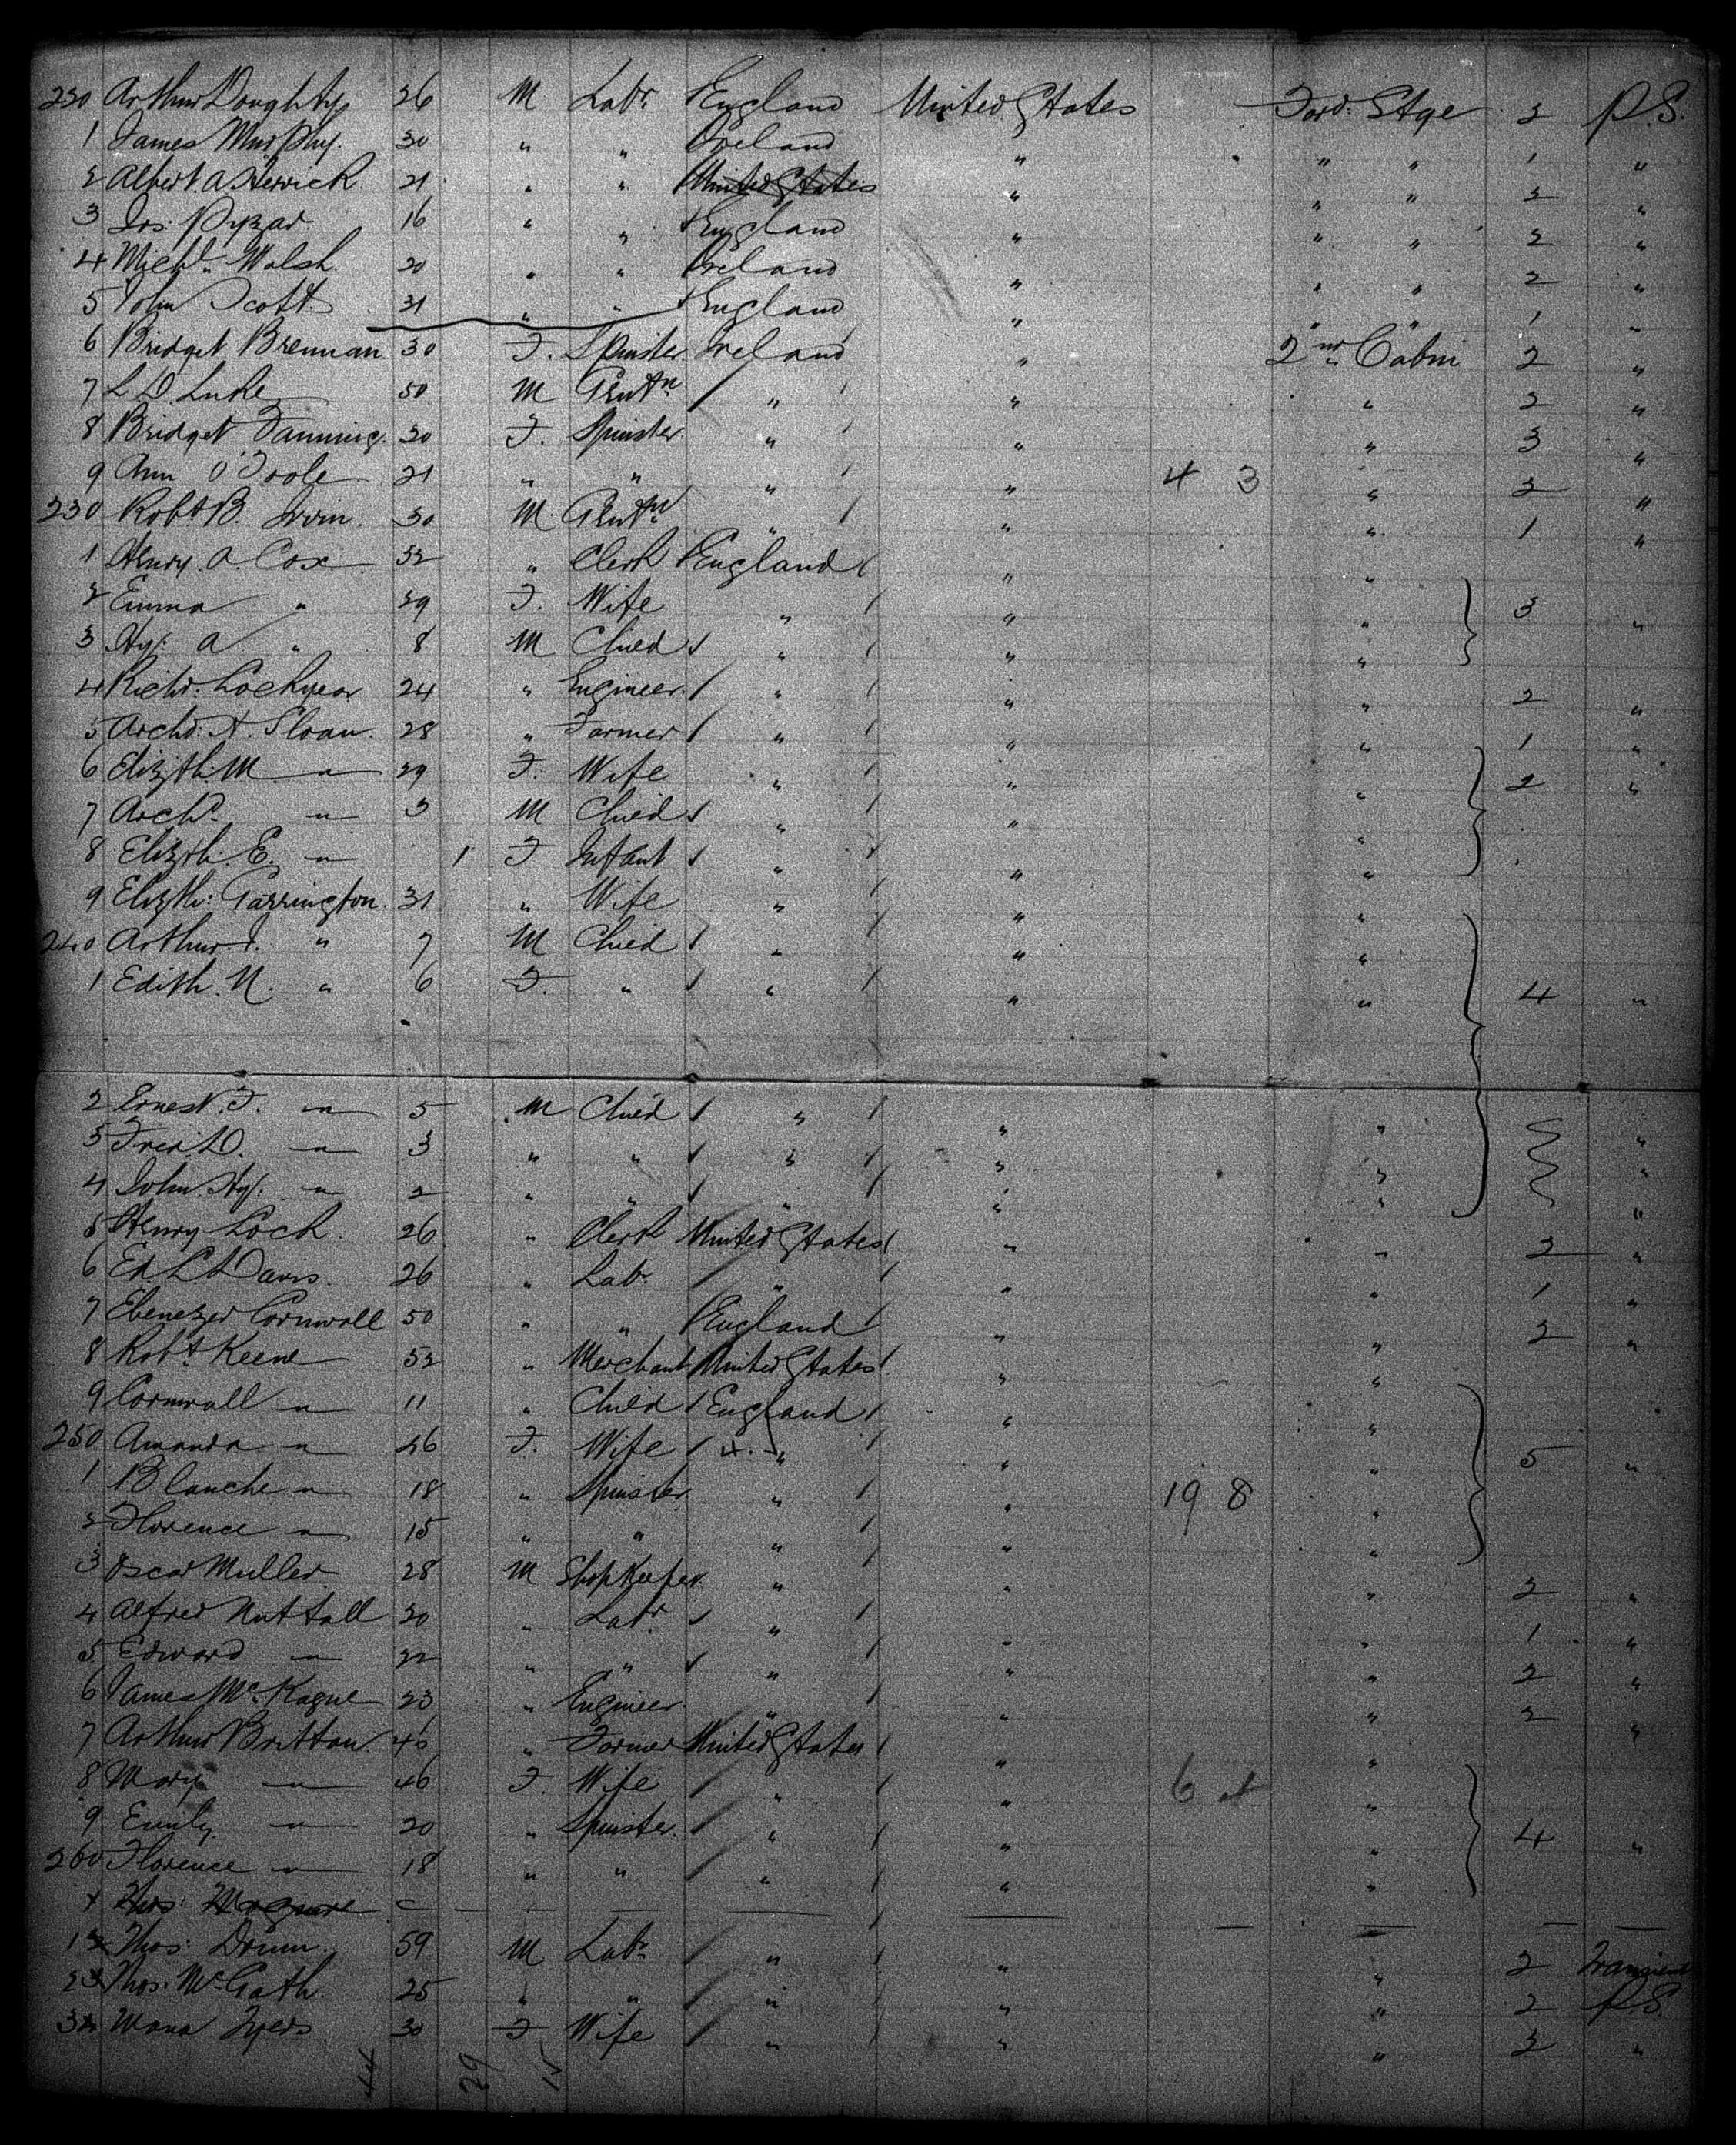 220 Arthur Doughty 26 M Labr. England United States Ford. Stge 2 P.S.
1 James Murphy. 30 " " Ireland " " " 1 "
2 Albert. A. Herrick 21 " " United States " " " 2 "
3 Jos: Pyzar 16 " " England " " " 2 "
4 Michl. Walsh 20 " " Ireland " " " 2 "
5 John Scott 31 " " England " " " 1 "
6 Bridget Brennan 30 F. Spinster Ireland " 2nd Cabin 2 "
7 L. D. Luke 50 M Gentn " " " 2 "
8 Bridget Fanning 20 F. Spinster " " " 3 "
9 Ann O'Toole 21 " " " " 4 3 " 2 "
230 Robt B. Irvin 30 M Gentn " " " 1 "
1 Henry. A. Cox 32 " Clerk England " "
2 Emma " 29 F. Wife " " " 3 "
3 Hy: A " 8 M Child " " "
4 Richd. Lockyear 24 " Engineer " " " 2 "
5 Archd. A. Sloan. 28 " Farmer " " " 1 "
6 Elizth. M " 29 F. Wife " " " 2 "
7 Archd. " 3 M Child " " "
8 Elizth. E. " 1 F Infant " " "
9 Elizth: Garrington. 31 " Wife " " "
240 Arthur. J. " 7 M Child " " "
1 Edith. N. " 6 F. " " " " 4 "
2 Ernest. F. " 5 M Child " " " "
3 Fred. D. " 3 " " " " " "
4 John. Hy. " 2 " " " " " "
5 Henry Lock 26 " Clerk United States " " 2 "
6 Ed L Davis. 26 " Labr. " " " 1 "
7 Ebenezer Cornwall 50 " " England " " 2 "
8 Robt. Keene 52 " Merchant United States " "
9 Cornwall " 11 " Child England " "
250 Amanda " 46 F. Wife " " " 5 "
1 Blanche " 18 " Spinster " " 19 8 "
2 Florence " 15 " " " " "
3 Oscar Muller 28 M Shopkeeper " " " 2 "
4 Alfred Nuttall 20 " Labr " " " 1 "
5 Edward " 22 " " " " " 2 "
6 James McKague 23 " Engineer " " " 2 "
7 Arthur Britton 46 " Farmer United States " "
8 Mary " 46 F Wife " " 6 "
9 Emily " 20 " Spinster. " " " 4 "
260 Florence " 18 " " " " "
Thos:
1 Thos: Drum 59 M Labr " " " 2 Transient
2 Thos: McGath. 25 " " " " " 2 P.S.
3 Maria Tyers 30 F Wife " " " 2 "
44 29 15